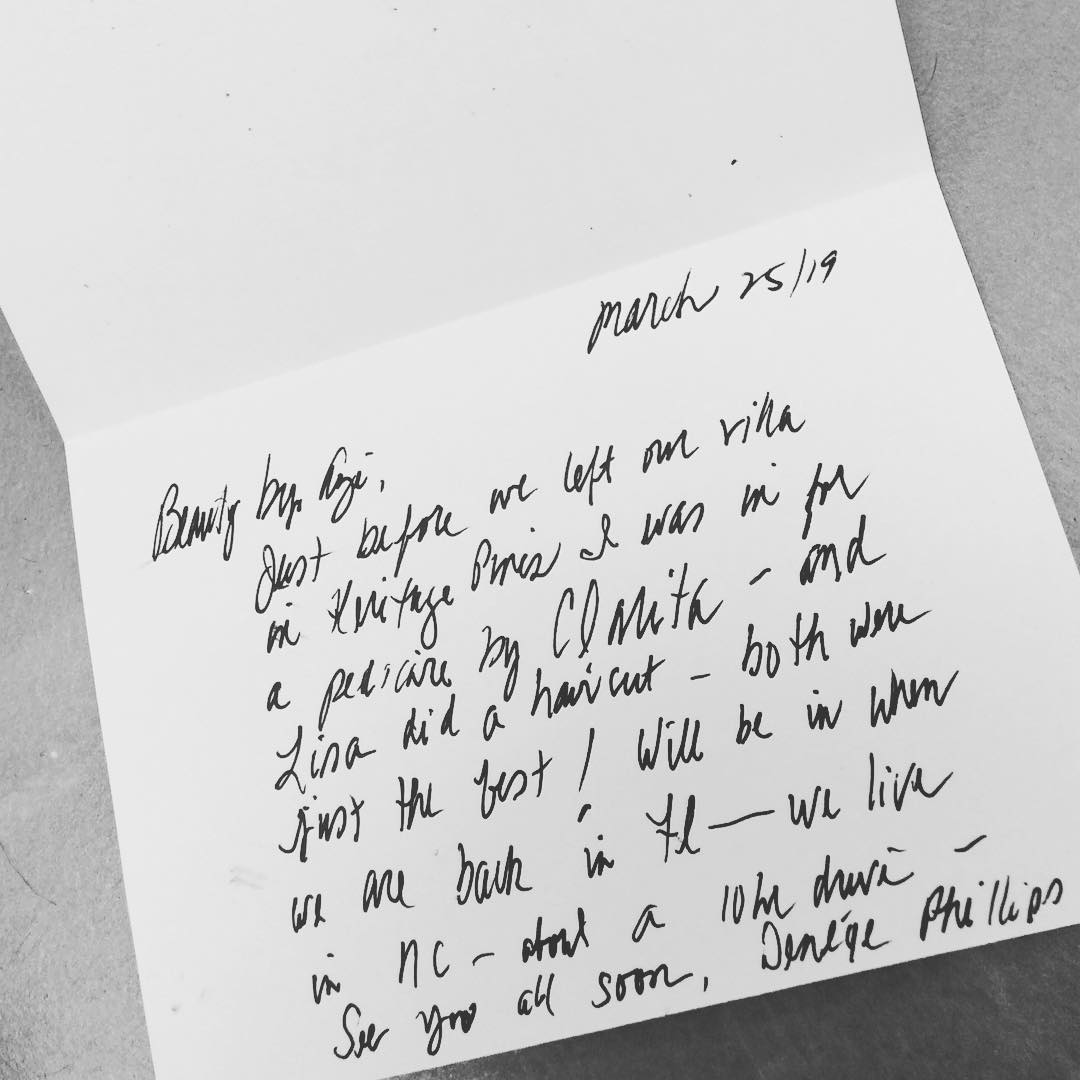 march 25/19
Beauty by
Just before we left our villa
in Heritage Pines I was in for
a pedicure by Clarita – and
Lisa did a haircut – both were
just the best! Will be in when
we are back in Fl — we live
in NC – about a 10 hr drive –
See you all soon, Denége Phillips